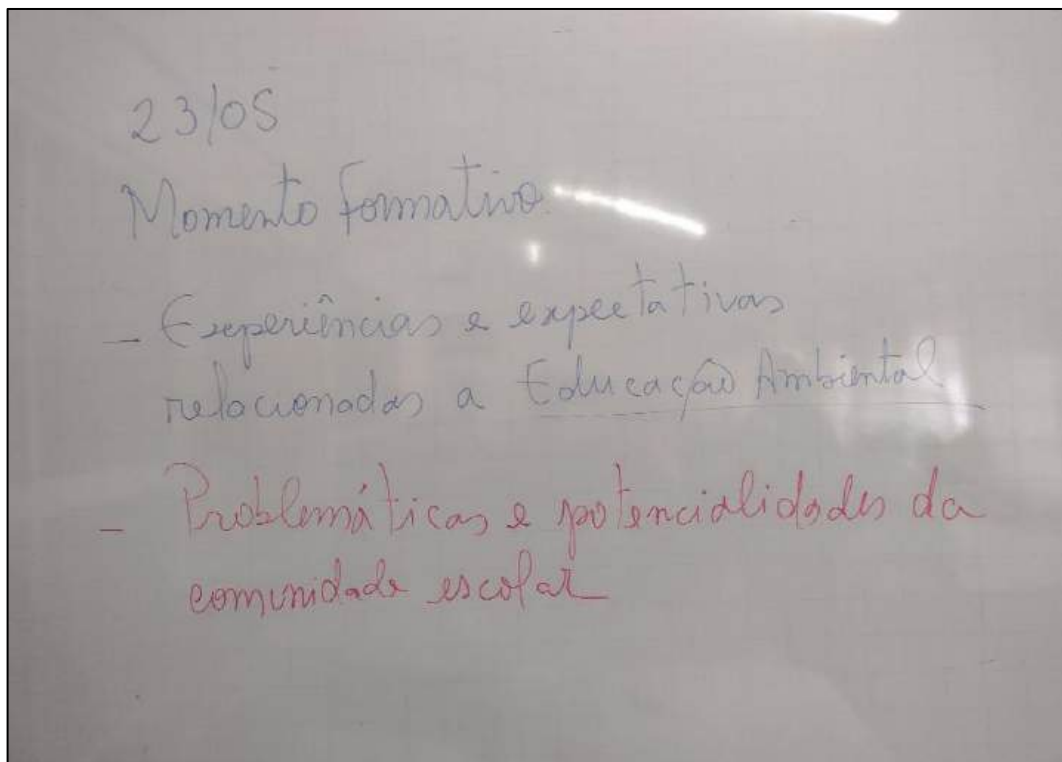 23/05
Momento formativo.
- Experiências e expectativas
relacionadas a Educação Ambiental
- Problemáticas e potencialidades da
comunidade escolar